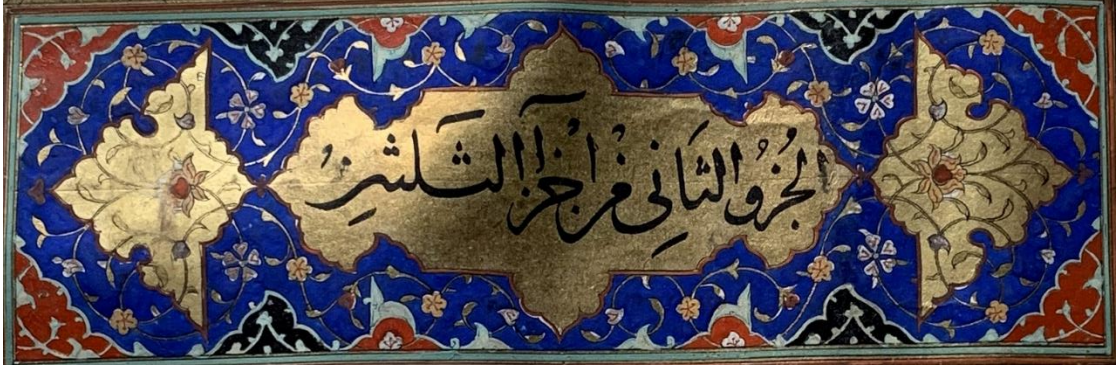 الجُزْوُ الثَّانِي مِنْ اَجْزَآءِ الثَّلَثِينَ